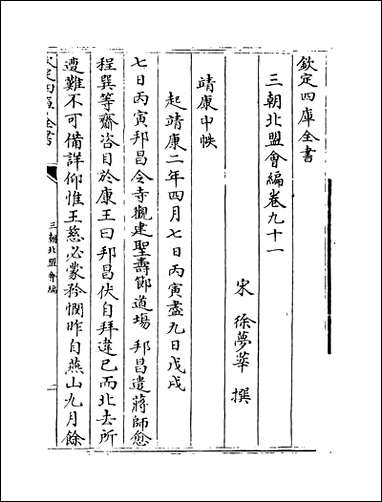 欽定四庫全書
三朝北盟會編卷九十一
宋 徐夢莘 撰
靖康中帙
起靖康二年四月七日丙寅盡九日戊戌
七日丙寅邦昌令寺觀建聖壽節道場 邦昌遣蔣師愈
程巽等齎咨目於康王曰邦昌伏自拜違已而北去所
遭難不可備詳仰惟王慈必蒙矜憫昨自燕山九月餘
欽定四庫全書
三朝北盟會編
一